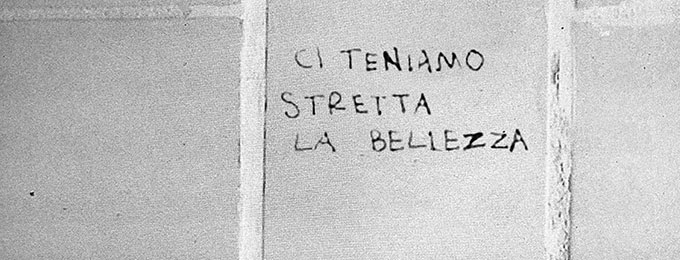 CI TENIAMO
STRETTA
LA BELLEZZA